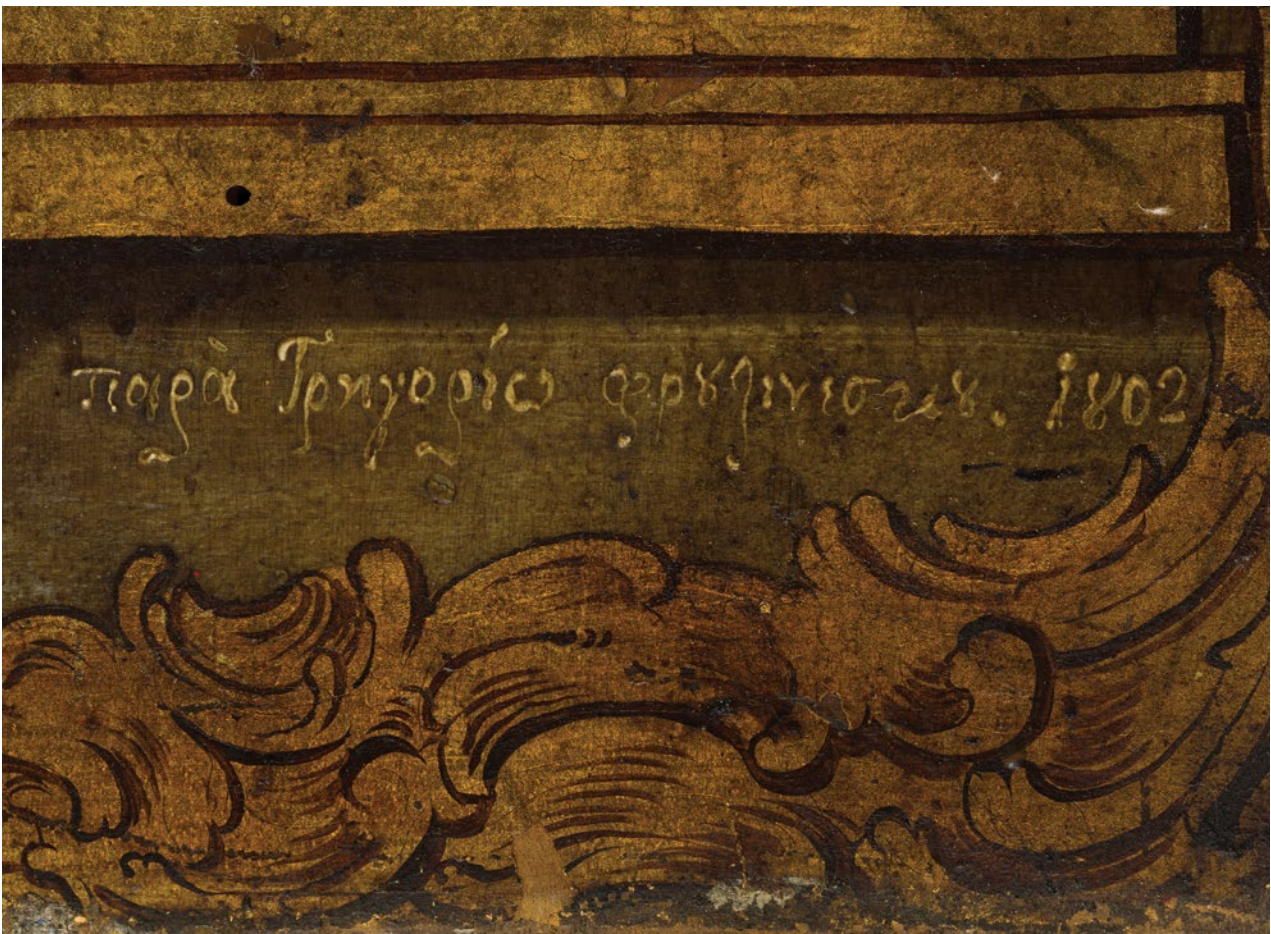 παρὰ Γρηγορίω φρȣζινεσκȣ. 1802